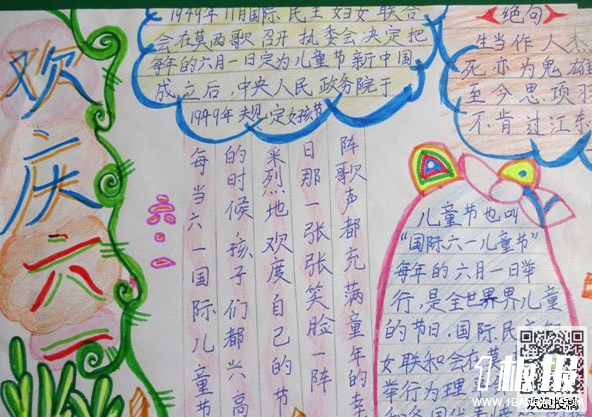 欢庆六一
1949年11月国际民主妇女联合
会在莫西歌召开执委会决定把
每年的六月一日定为儿童节新中国
成立后,中央人民政务院于
1949年规定女孩节
绝句
生当作人杰
死亦为鬼雄
至今思项羽
不肯过江东
六一
每当六一国际儿童节
的时候孩子们都兴高
采烈地欢度自己的节
日那一张张笑脸一阵
阵歌声都充满童年的幸
儿童节也叫
“国际六一儿童节”
每年的六月一日举
行,是全世界界儿童
的节日,国际民
女联和会在莫
举行为理
1板报
WWW.1BANBAO.COM
欢迎投稿